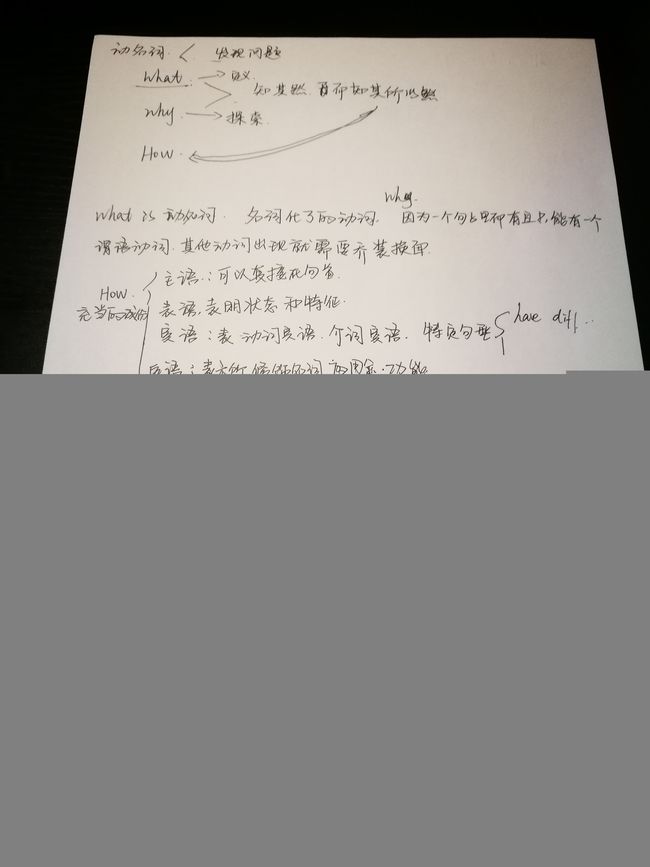 动名词 < 发现问题
what → 定义
知其然,百而知其所以然
why → 探索
How
why
what is 动名词. 名词化了的动词. 因为一个句子里仲有且只能有一个
谓语动词.其他动词出现就需要乔装换面.
How
充当的成份
主语:可以直接在句首
表语,表明状态和特征.
宾语:表动词宾语.介词宾语. 特页句型 have diff..
定语:表示所修饰名词的用途.功能